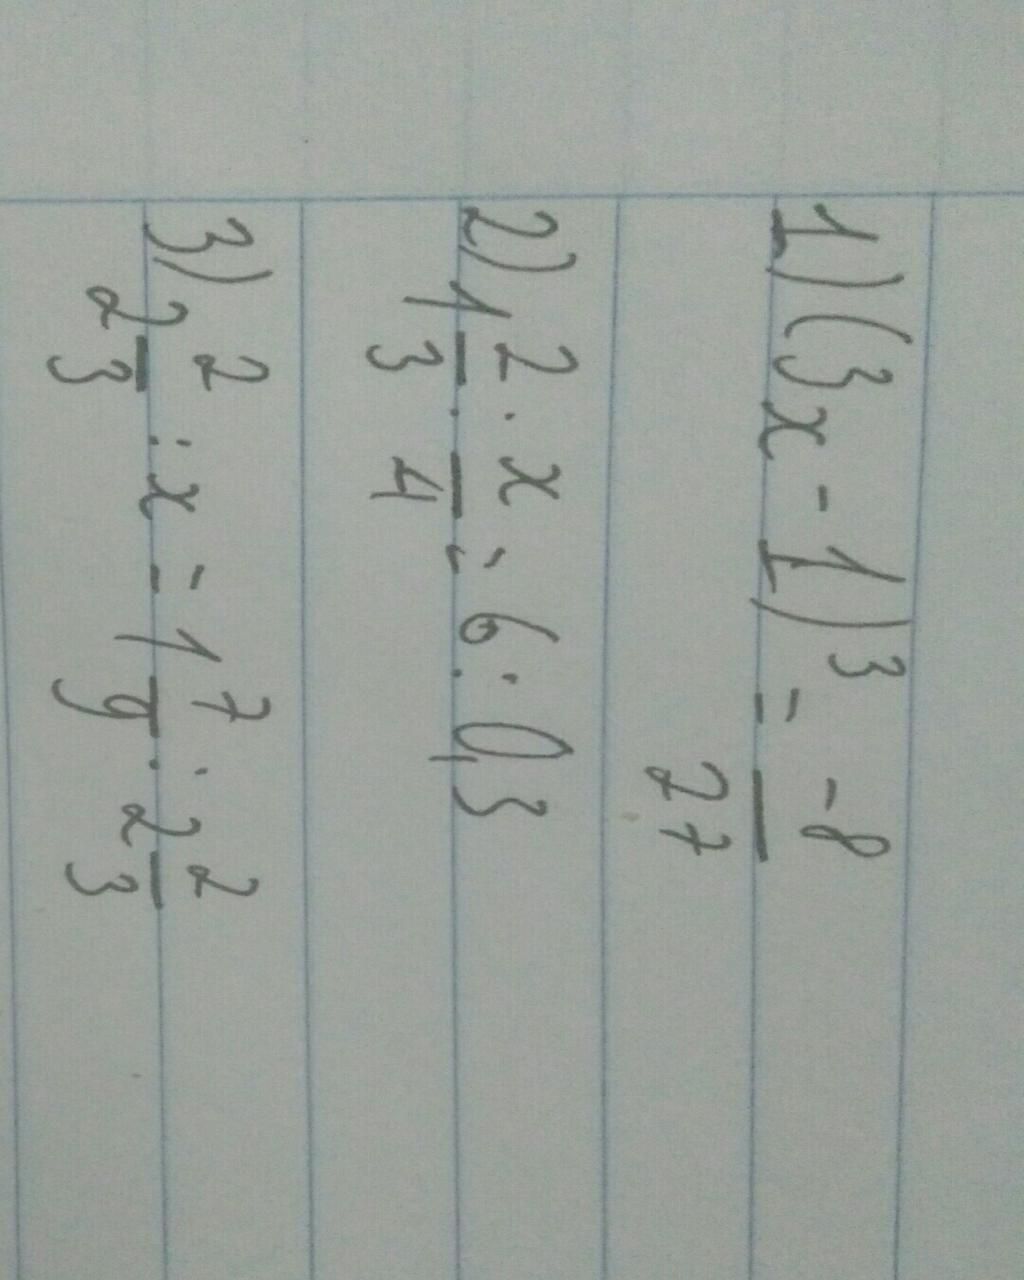 1) (3x - 1)³ = -8/27
2) 1 2/3 : x/4 = 6 : 0,3
3) 2 2/3 : x = 1 7/9 : 2 2/3